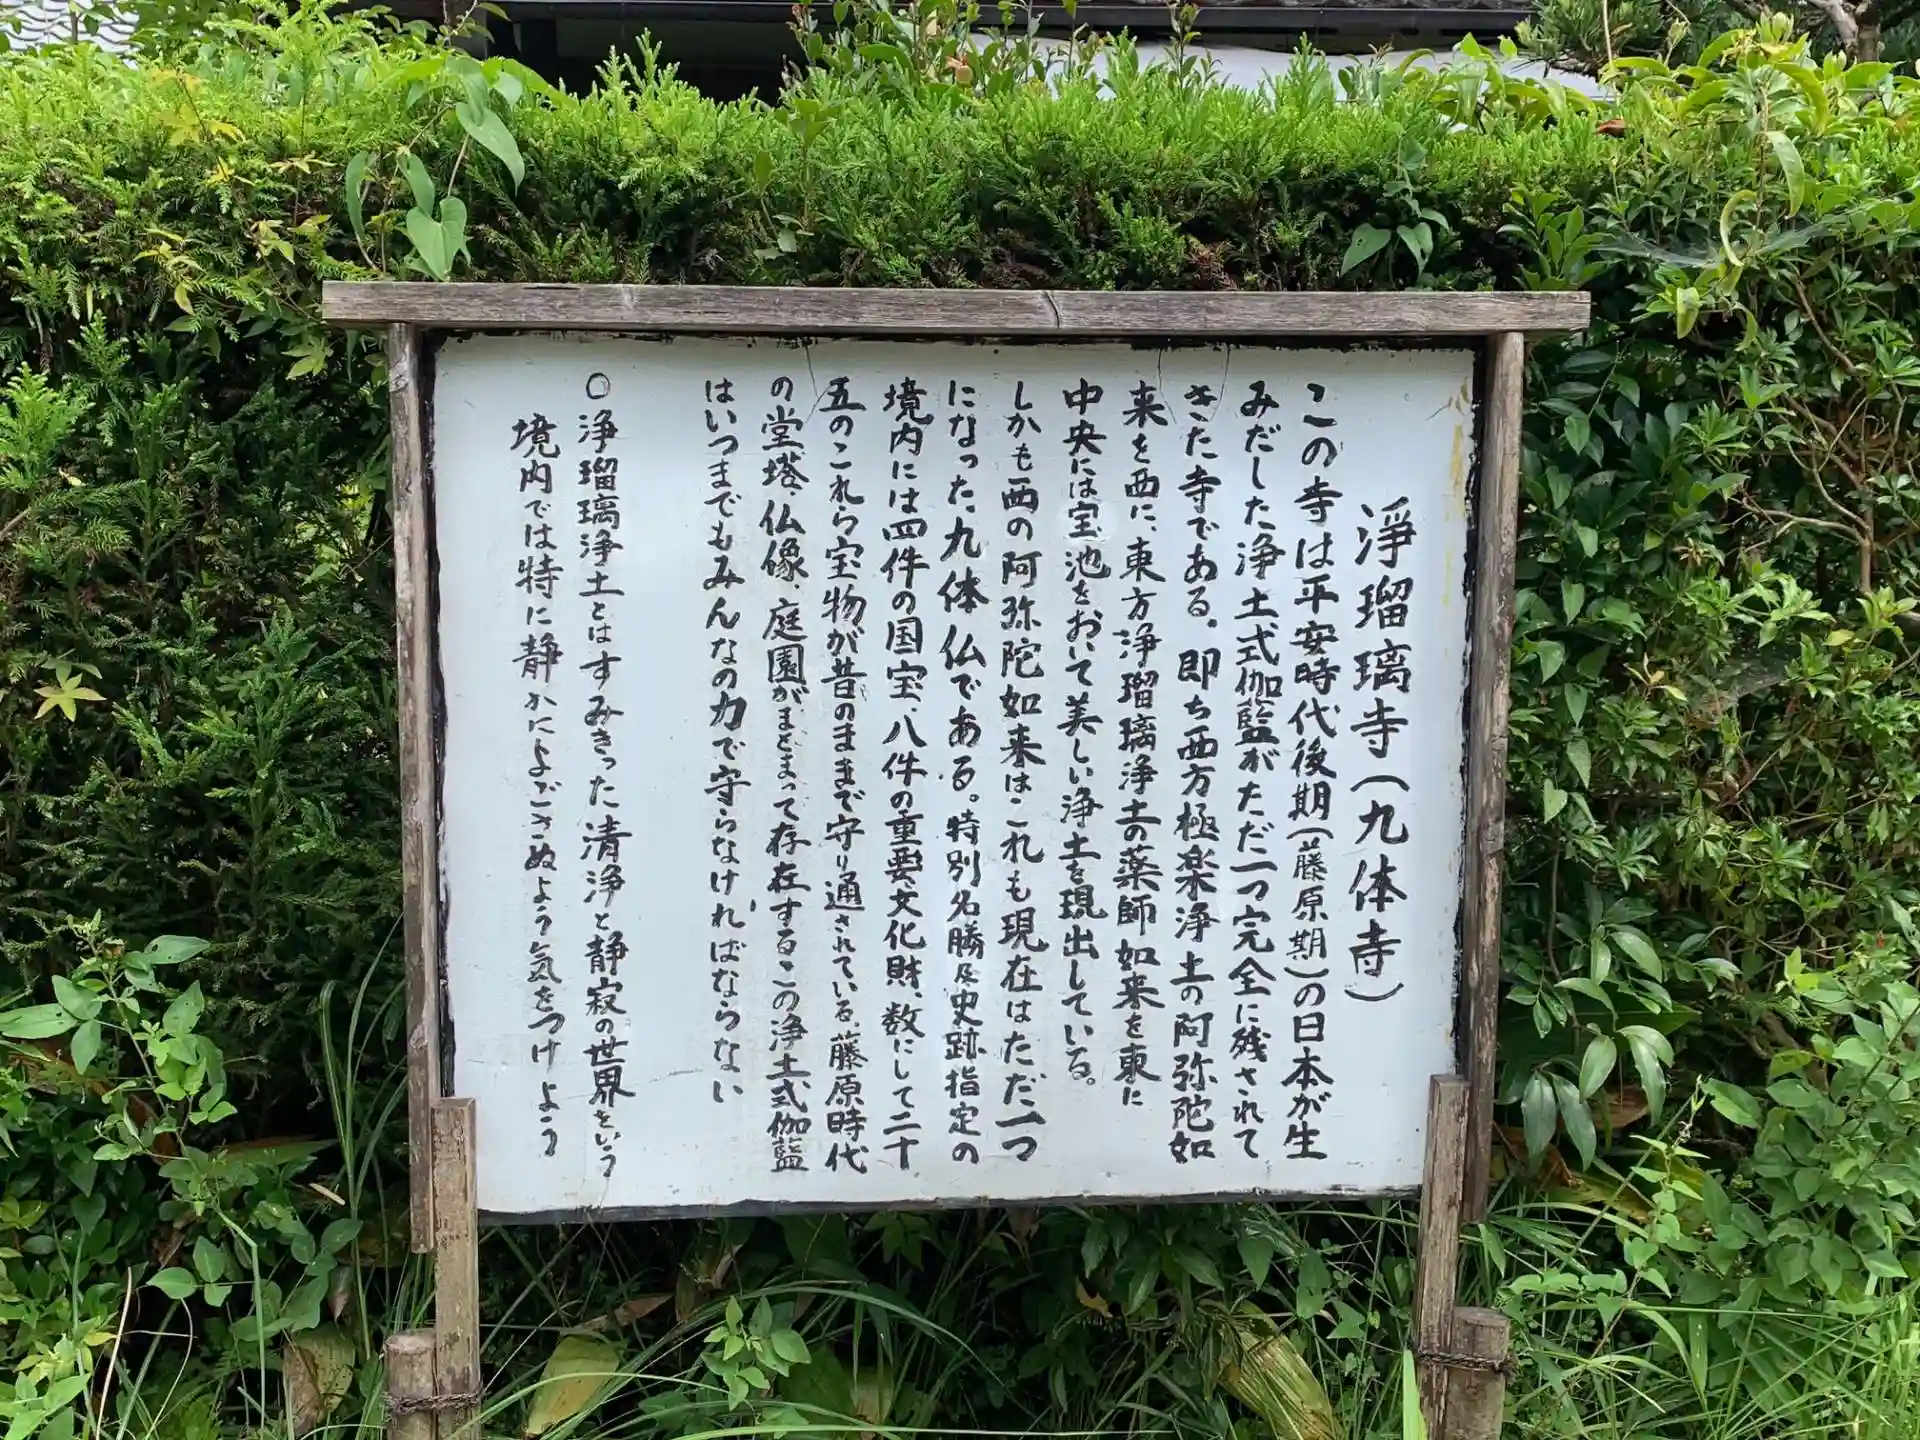 浄瑠璃寺(九体寺)
この寺は平安時代後期(藤原期)の日本が生
みだした浄土式伽藍がただ一つ完全に残されて
きた寺である。即ち西方極楽浄土の阿弥陀如
来を西に、東方浄瑠璃浄土の薬師如来を東に
中央には宝池をおいて美しい浄土を現出している。
しかも西の阿弥陀如来はこれも現在はただ一つ
になった九体仏である。特別名勝及史跡指定の
境内には四件の国宝、八件の重要文化財、数にして二十
五のこれら宝物が昔のままで守り通されている。藤原時代
の堂塔、仏像、庭園がまとまって存在するこの浄土式伽藍
はいつまでもみんなの力で守らなければならない
〇浄瑠璃浄土とはすみきった清浄と静寂の世界をいう
境内では特に静かによごさぬよう気をつけよう